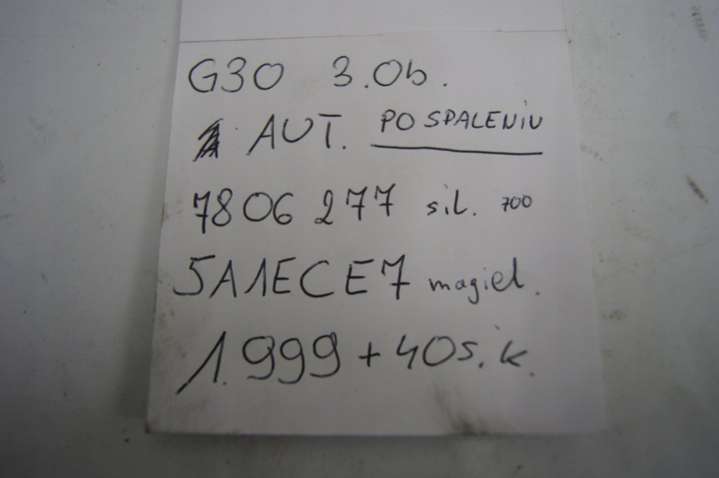 G30 3.0b.
AUT. PO SPALENIU
7806 277 sil. 700
5A1ECE7 magiel.
1.999 + 40 s.k.